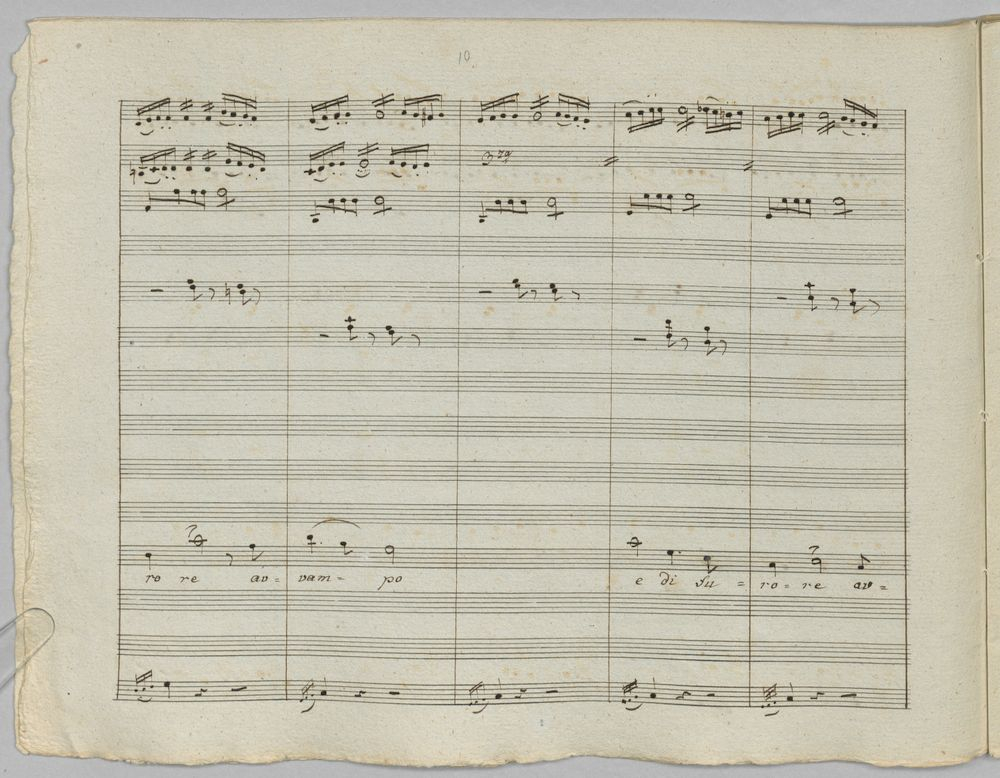 10
3za
ro re av= vam= po e di fu = ro = re av=